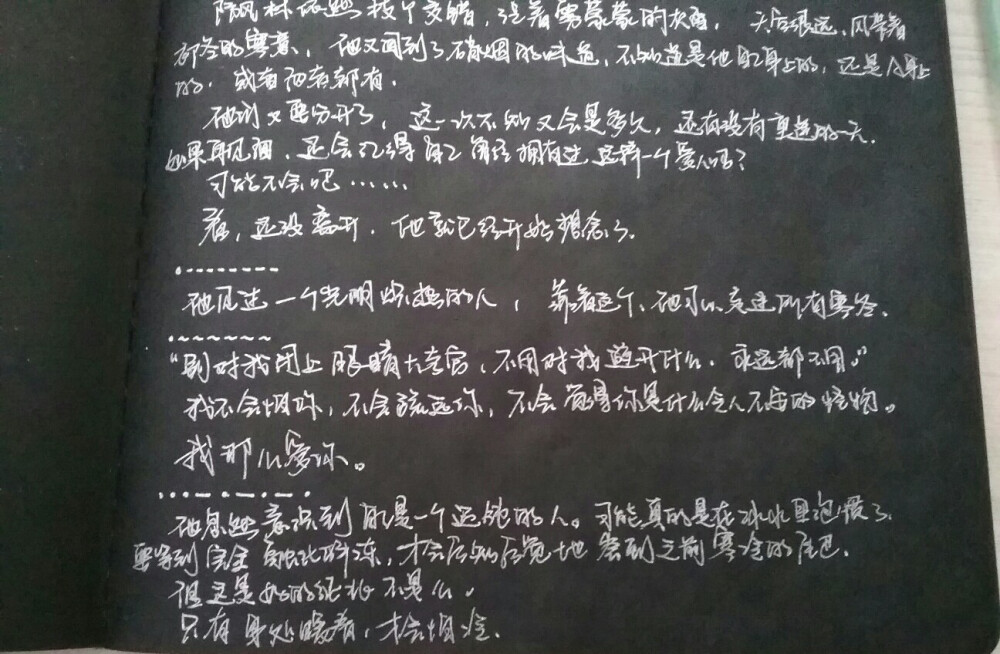 防风林依然枝个交错，泛着雾蒙蒙的灰白，天启很远，风带着
初冬的寒意，他又闻到了硝烟的味道，不知道是他自身上的，还是人身上
的，或者两者都有。
他们又要分开了，这一次不知又会是多久，还有没有重逢的一天。
如果再见面，还会记得自己曾经拥有过这样一个爱人吗？
可能不会吧……
看，还没离开，他就已经开始想念了。
他见过一个光明炽热的人，靠着这个，他可以走过所有寒冬。
“别对我闭上眼睛大考官，不用对我避开什么，永远都不用。”
我不会怕你，不会疏远你，不会觉得你是什么令人不安的怪物。
我那么爱你。
他忽然意识到自己是一个迟钝的人。可能真的是在冰水里泡惯了
要等到完全融化解冻，才会后知后觉地感到之前寒冷的尾巴。
但这是好的征兆不是么。
只有身处暖春，才会怕冷。